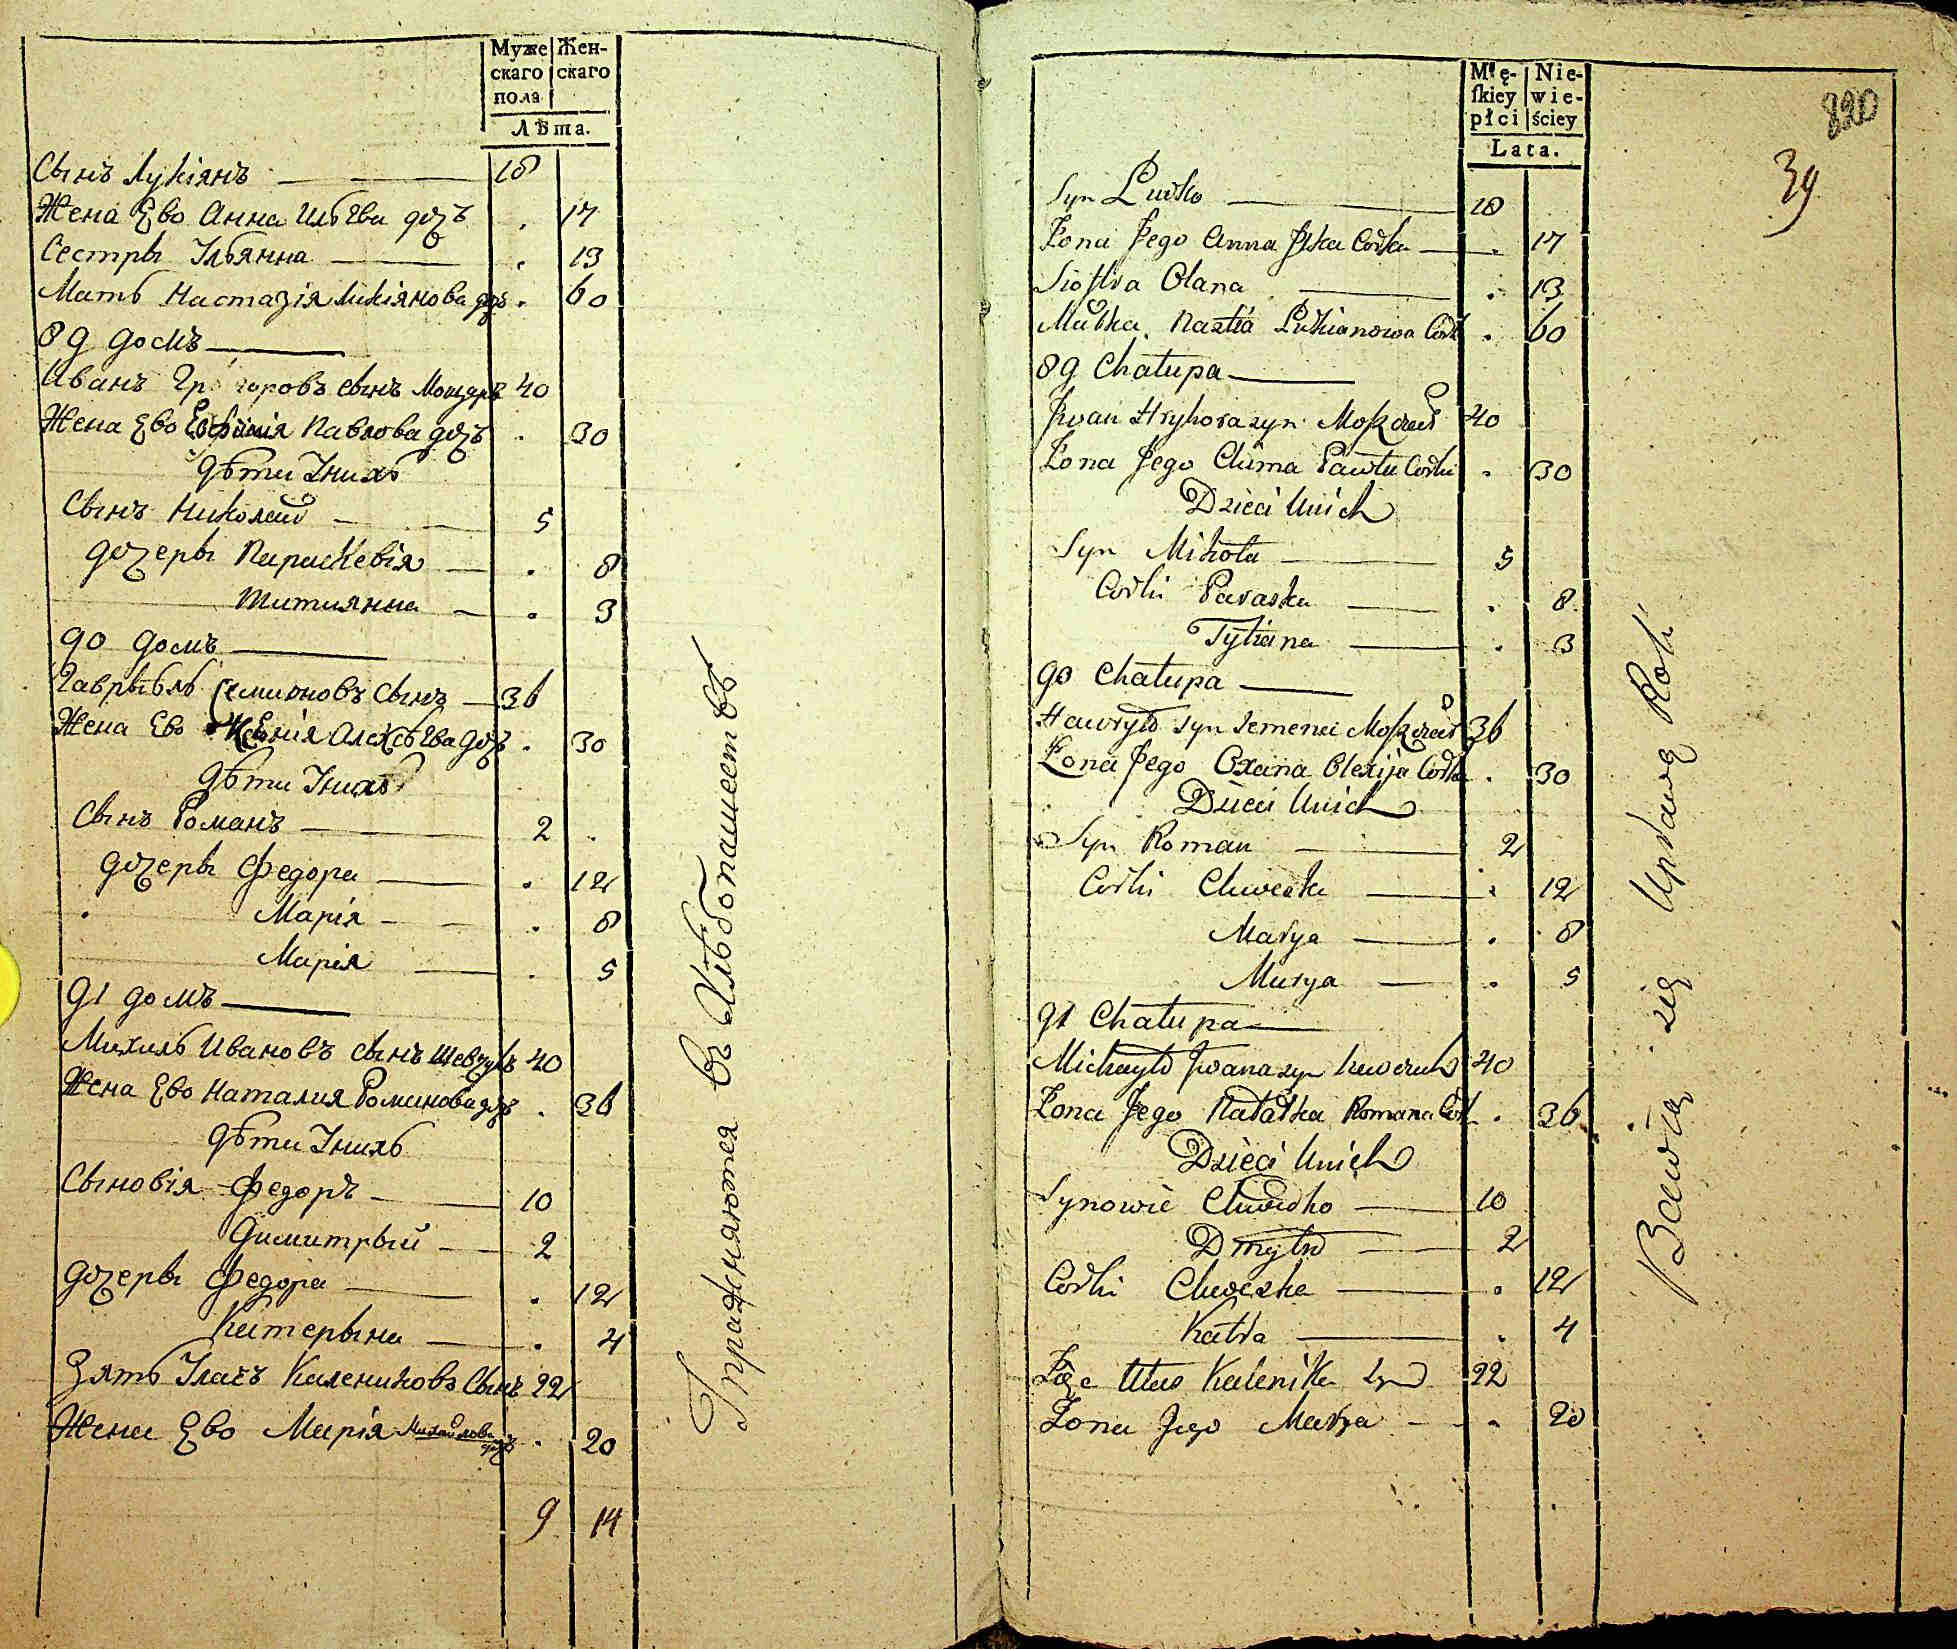 Муже Жен-
скаго скаго
пола
Лѣта.
Сынъ Лукіянъ 18
Жена Ево Анна дочъ . 17
Сестры Ульянна . 13
Мать Настазія Лукіянова дочъ . 60
89 домъ
Иванъ Григоровъ сынъ 40
Жена Ево Евфимія Павлова дочъ . 30
дѣти Унихъ
Сынъ Николай 5
дочеры Параскевія . 8
Титиянна . 3
90 домъ
Гаврыель Семионовъ Сынъ 36
Жена Ево Ксенія Олексѣева дочъ . 30
дѣти Унихъ
Сынъ Романъ 2 .
дочеры Федора . 12
Марія . 8
Марія . 5
91 домъ
Михаль Ивановъ сынъ Шевчукъ 40
Жена Ево Наталия Романова дочъ . 36
дѣти Унихъ
Сыновія Федоръ 10
Димитрый 2
дочеры Федора . 12
Катерына . 4
Зять Уласъ Калениковъ Сынъ 22
Жена Ево Марія Михайлова дочъ . 20
9 14
Упражняются въ Хлѣбопашествѣ
Mę- Nie-
skiey wie-
płci ściey
Lata.
820
39
Syn Lućko 18
Żona Jego Anna Córka . 17
Siostra Olana . 13
Matka Nastia Lukianowa Córk . 60
89 Chałupa
Iwan Hryhora syn 40
Żona Jego Chima Pawła Córka . 30
Dzieci Unich
Syn Mikoła 5
Córki Paraska . 8
Tytiana . 3
90 Chałupa
Hawryło syn Semena 36
Żona Jego Oxana Olexija Córka . 30
Dzieci Unich
Syn Roman 2
Córki Chweśka . 12
Marya . 8
Marya . 5
91 Chałupa
Michayło Iwana syn 40
Żona Jego Natałka Romana Córk . 36
Dzieci Unich
Synowie Chwedko 10
Dmytro 2
Córki Chweska . 12
Katra . 4
Zięc Ułas Kalenika Syn 22
Żona Jego Marya . 20
Bawią się Uprawą Roli